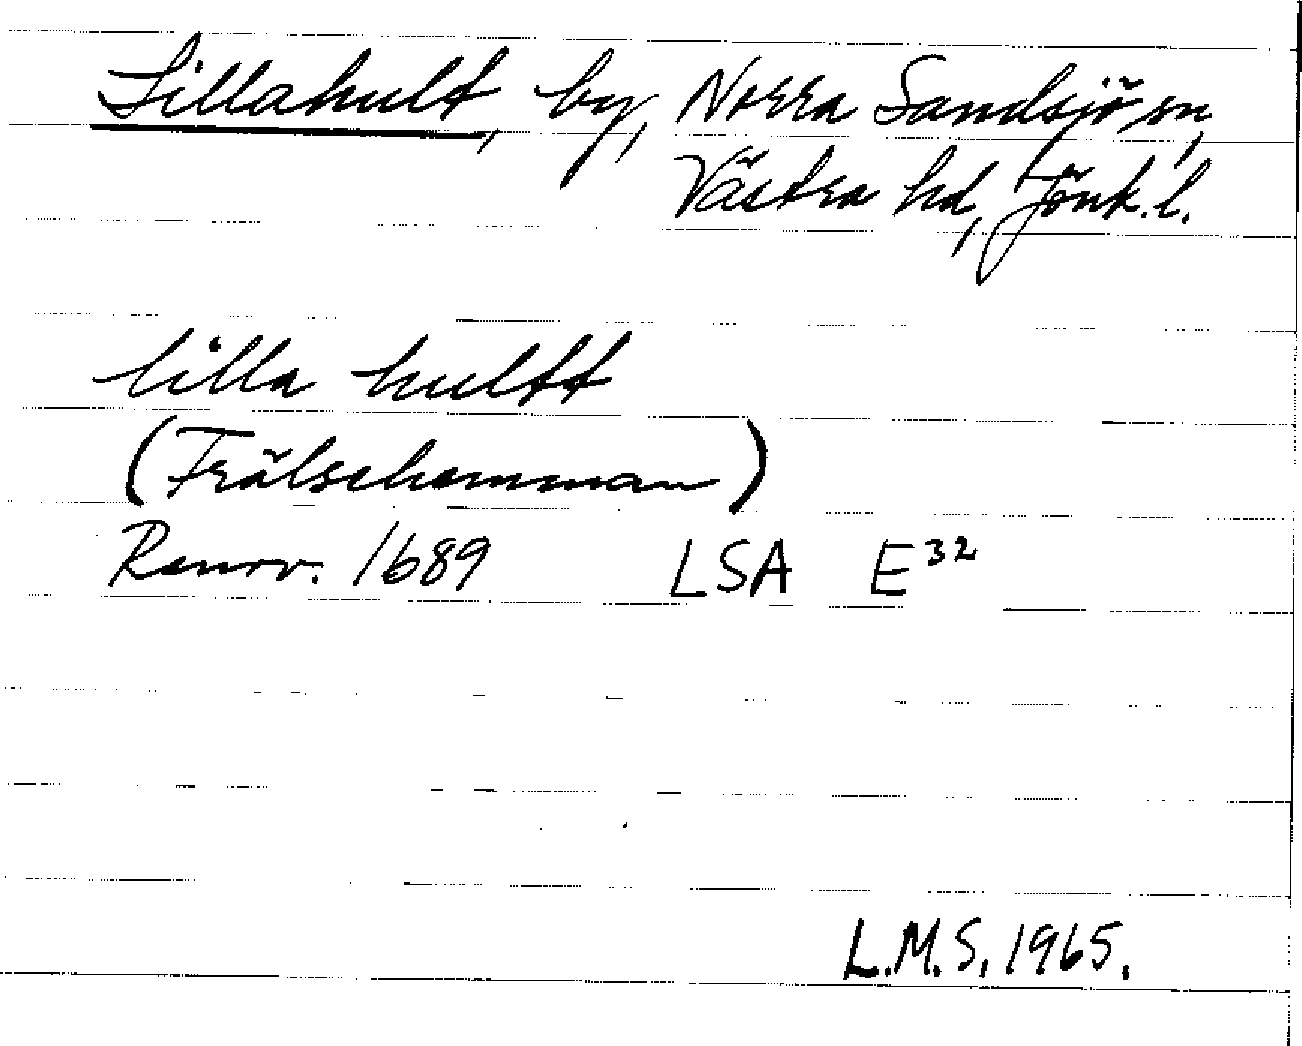 Lillahult, by, Norra Sandsjö sn,
Västra hd, Jönk. l.
lilla hultt
(Frälsehemman)
Renov. 1689 LSA E³²
L.M.S. 1965.